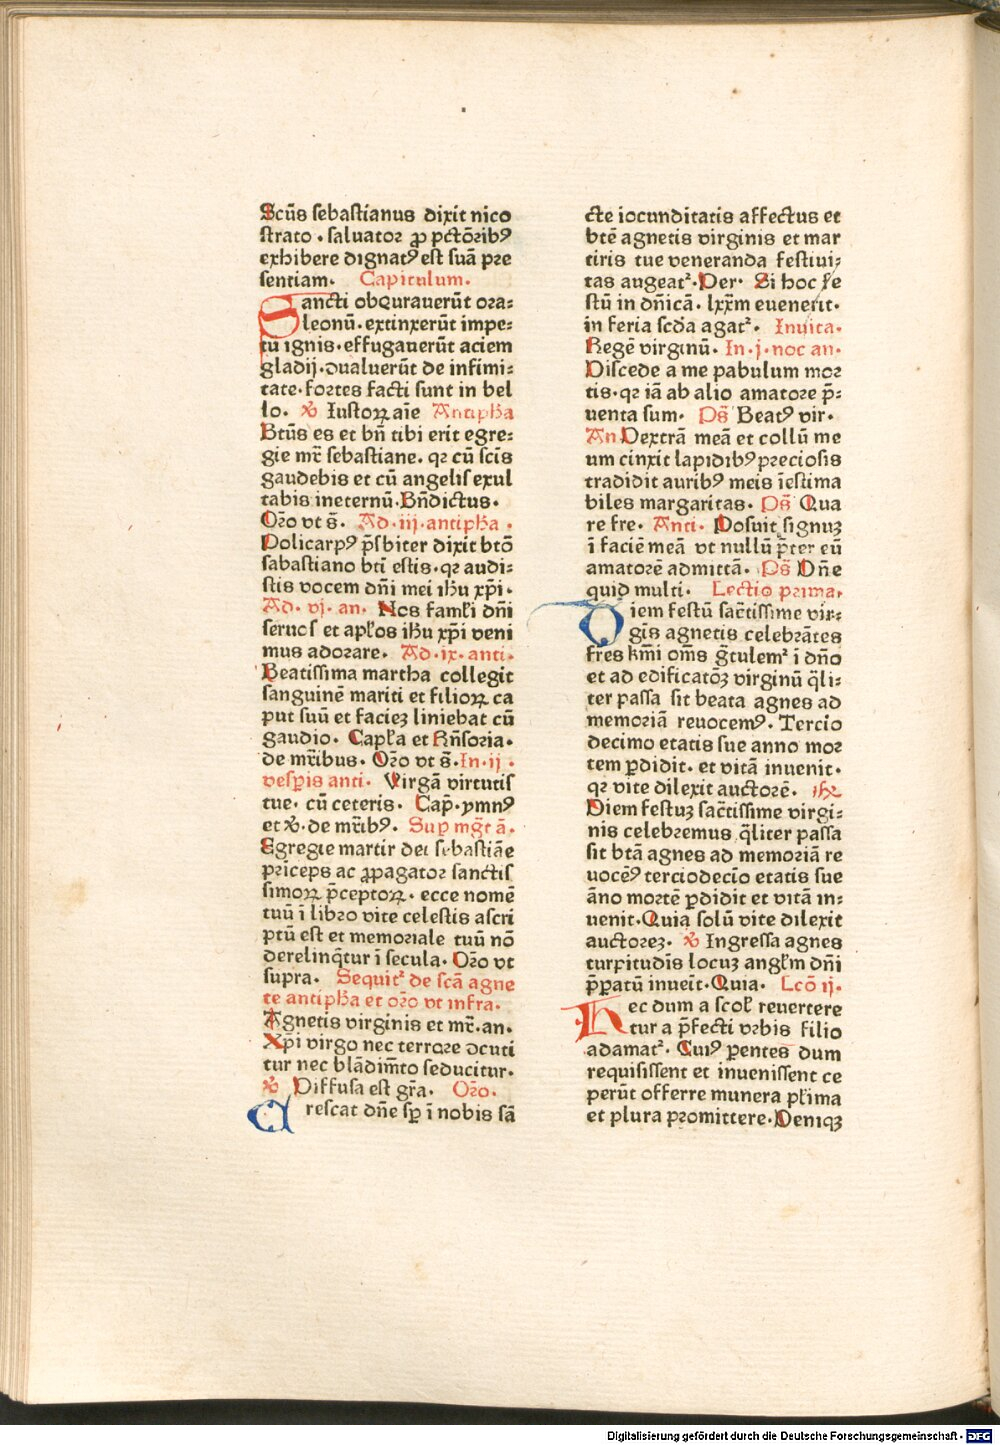 Scūs sebastianus dixit nico
strato · saluator ꝓ pctōribꝰ
exhibere dignatꝰ est suā pre
sentiam. Capitulum.
Sancti obqurauerūt ora:
leonū · extinxerūt impe:
tu ignis · effugauerūt aciem
gladij · ꝯualuerūt de infirmi:
tate · fortes facti sunt in bel
lo. ℣ Iustoꝝ aīe Antipħa
Btūs es et bn̄ tibi erit egre:
gie mr̄ sebastiane. qꝛ cū scīs
gaudebis et cū angelis exul
tabis ineternū · Bn̄dictus.
Oro vt s̄. Ad · iij · antipħa ·
Policarpꝰ p̄sbiter dixit btō
sabastiano btī estis · qꝛ audi:
stis vocem dn̄i mei iħu xp̄i ·
Ad. vj. an. Nos famłi dn̄i
seruos et apłos iħu xp̄i veni
mus adorare. Ad · ix · anti ·
Beatissima martha collegit
sanguinē mariti et filioꝝ ca
put suū et facieꝫ liniebat cū
gaudio. Capła et Rn̄soria ·
de mr̄ibus. Oro vt s̄. In · ij ·
vesp̄is anti. Virgā virtutis
tue. cū ceteris. Cap̄. ymnꝰ
et ℣. de mr̄ibꝰ. Sup mḡt ā.
Egregie martir dei sebastiāe
prīceps ac ꝓpagator sanctis
simoꝝ p̄ceptoꝝ · ecce nomē
tuū ī libro vite celestis ascri
ptū est et memoriale tuū nō
derelinq̄tur ī secula. Oro vt
supra. Sequitᷣ de scā agne
te antipħa et oro vt infra.
Agnetis virginis et mr̄. an.
Xp̄i virgo nec terrore ꝯcuti
tur nec blādimto seducitur.
℣ Diffusa est gr̄a. Oro.
Crescat dn̄e sꝑ ī nobis sā
cte iocunditatis affectus et
btē agnetis virginis et mar
tiris tue veneranda festiui:
tas augeatᷣ · Per · Si hoc fe
stū in dn̄icā. lxxm̄ euenerit ·
in feria scda agatᷣ. Inuita ·
Regē virginū. In · j · noc an.
Discede a me pabulum mor
tis · qꝛ iā ab alio amatore p̄:
uenta sum. Ps̄ Beatꝰ vir ·
An Dextrā meā et collū me
um cinxit lapidibꝰ preciosis
tradidit auribꝰ meis īestima
biles margaritas. Ps̄ Qua
re fre. Anti. Posuit signuꝫ
ī faciē meā vt nullū p̄ter eū
amatorē admittā. Ps̄ Dn̄e
quid multi. Lectio prima,
Diem festū sac̄tissime vir:
gīs agnetis celebrātes
fres kmī oms ḡtulemᷣ ī dn̄o
et ad edificatōꝫ virginū q̄li:
ter passa sit beata agnes ad
memoriā reuocemꝰ. Tercio
decimo etatis sue anno mor
tem ꝑdidit · et vitā inuenit ·
qꝛ vite dilexit auctorē.
Diem festuꝫ sac̄tissime virgi:
nis celebremus q̄liter passa
sit btā agnes ad memoriā re
uocēꝰ terciodecīo etatis sue
āno mortē ꝑdidit et vitā in:
uenit · Quia solū vite dilexit
auctoreꝫ. ℣ Ingressa agnes
turpitudīs locuꝫ angłm dn̄i
p̄patū inueīt · Quia. Lcō ij.
Hec dum a scoł reuertere
tur a p̄fecti vrbis filio
adamatᷣ. Cuiꝰ ꝑentes dum
requisissent et inuenissent ce
perūt offerre munera płima
et plura promittere · Deniqꝫ
Digitalisierung gefördert durch die Deutsche Forschungsgemeinschaft - DFG